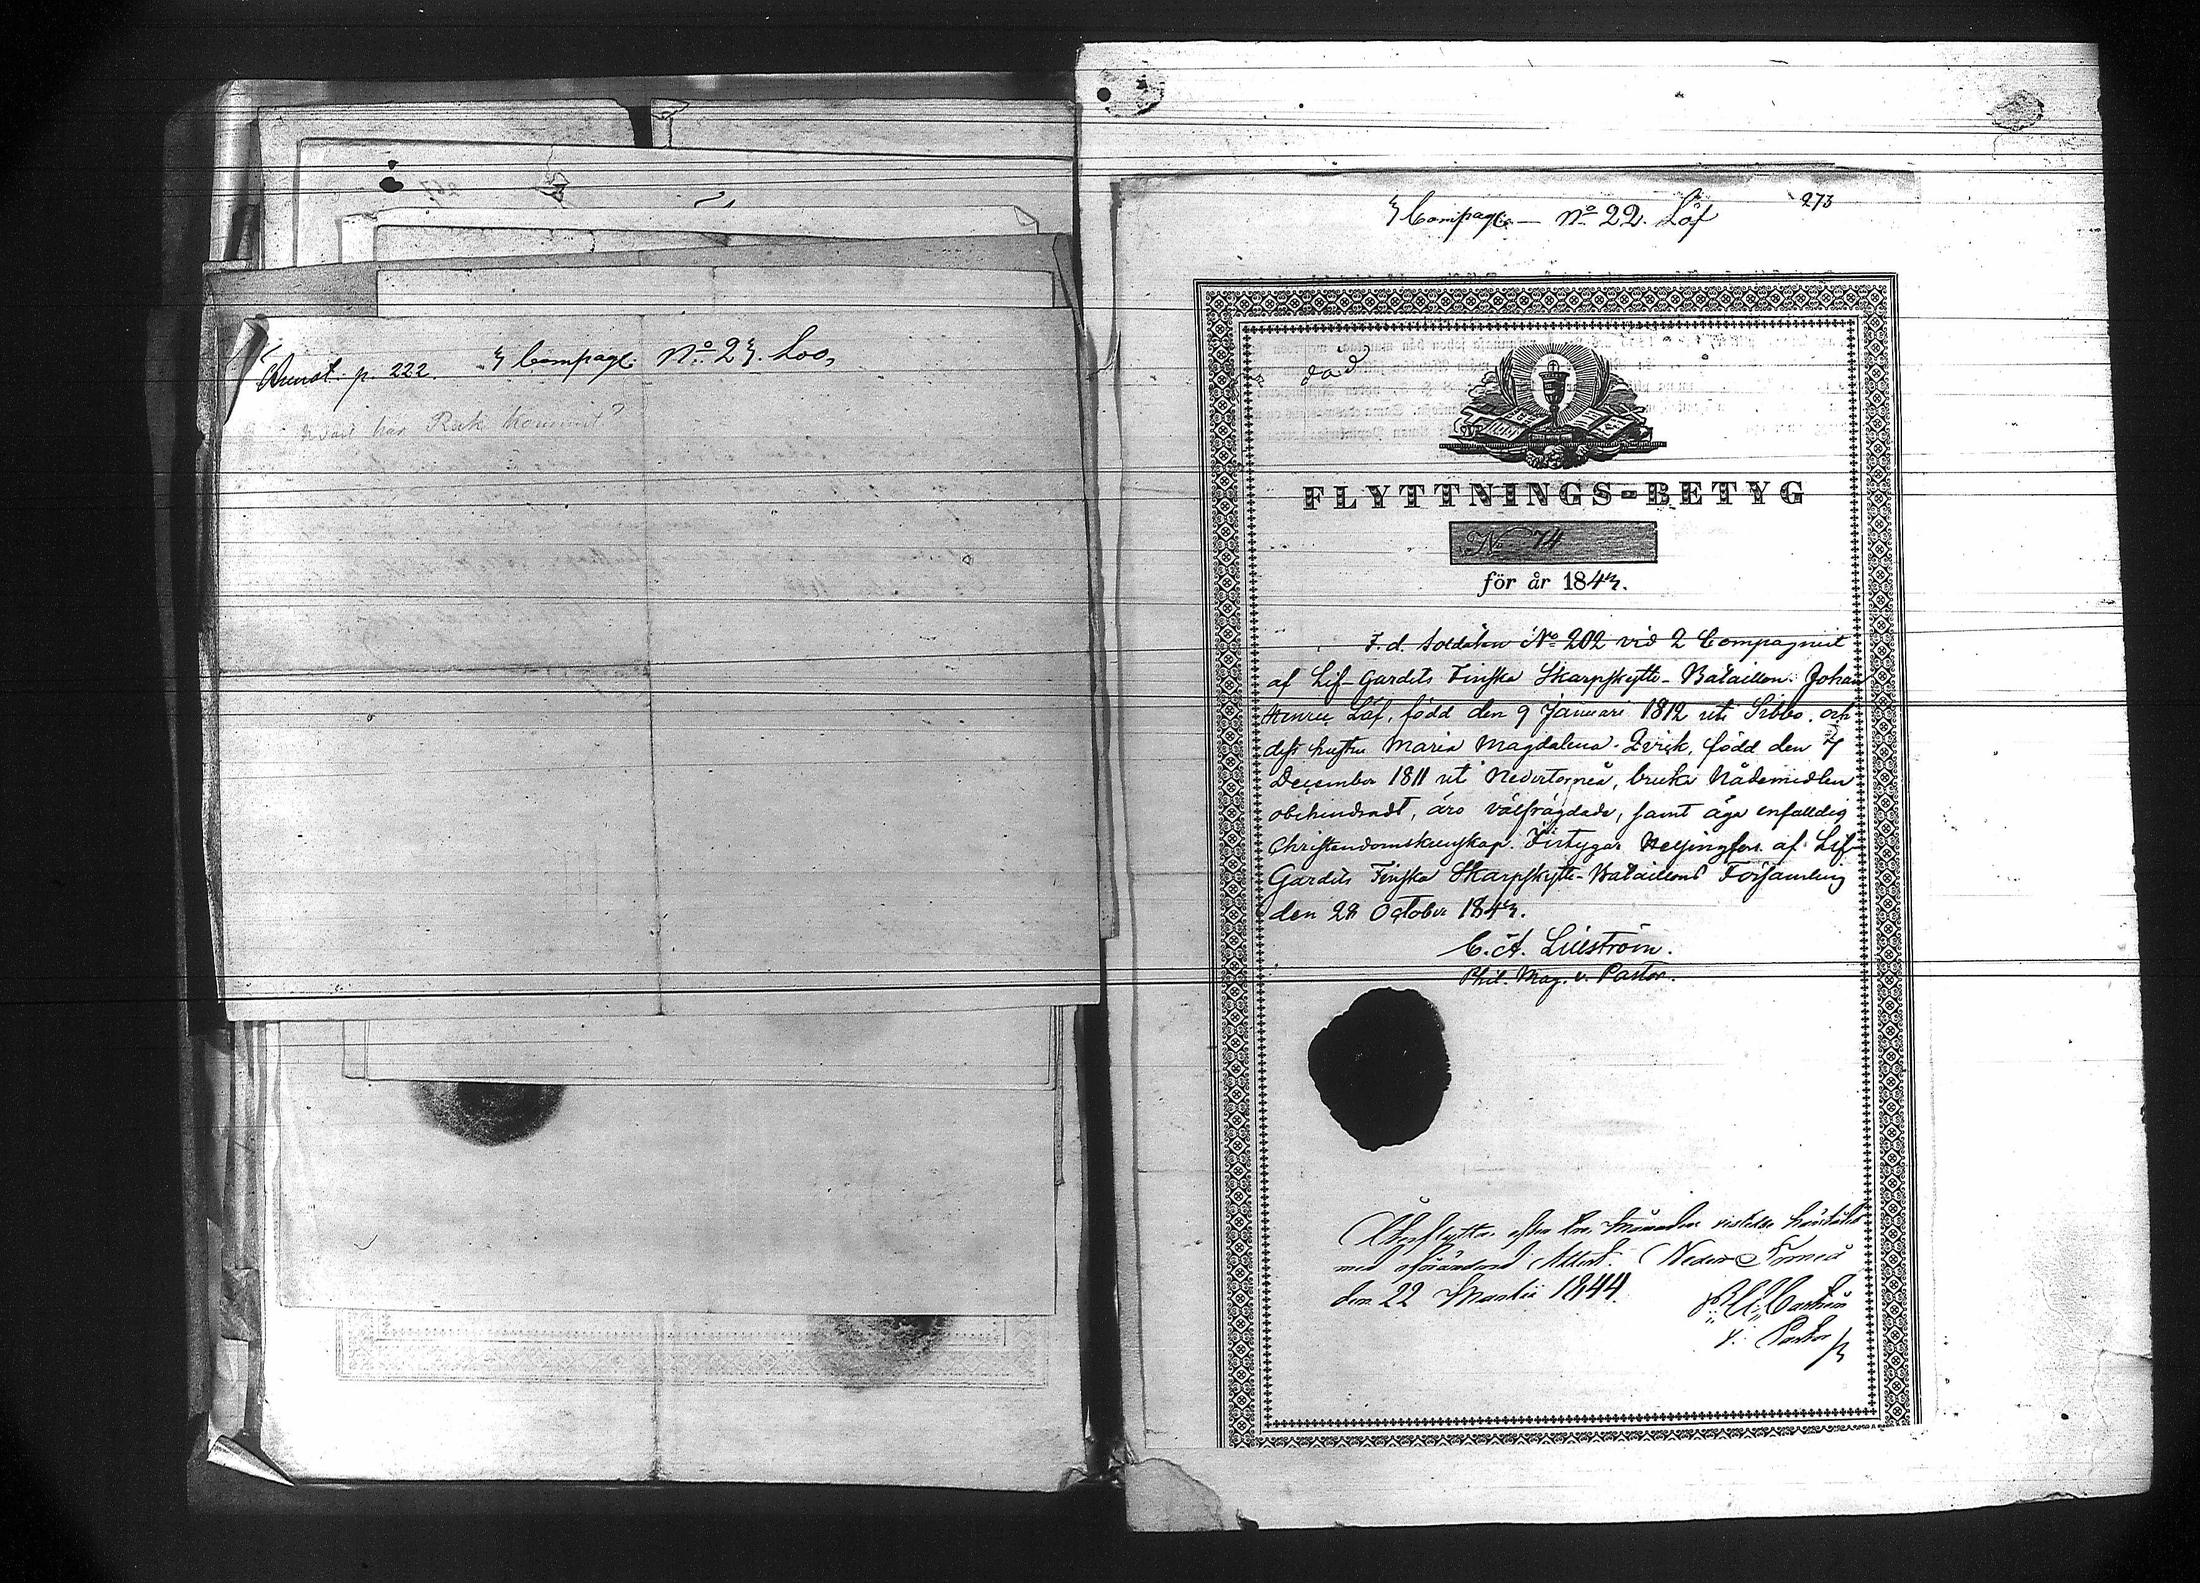 p. 222. 3 Compagt. No 23. Loo,
hvart har Ruk kommit?
3 Compagt. — No 22. Löf
273
dad
FLYTTNINGS-BETYG
No 74
för år 1843.
F. d. Soldaten No 202 vid 2 Compagniet
af Lif-Gardets Finska Skarpskytte-Bataillon Johan
Henric Löf, född den 9 Januari 1812 uti Sibbo, och
dess hustru Maria Magdalena Qvick, född den 7
December 1811 uti Nedertorneå, bruka Nådemedlen
obehindradt, äro välfrägdade, samt äga enfaldig
Christendomskunskap. Betygar Helsingfors af Lif-
Gardets Finska Skarpskytte-Bataillons Församling
den 28 October 1843.
C. A. Lilliström.
Phil. Mag. v. Pastor.
Återflyttar efter tre Månaders vistelse härstädes
med oförändrad Attest. Neder Torneå
den 22 Martii 1844.
Castrén
v. Pastor